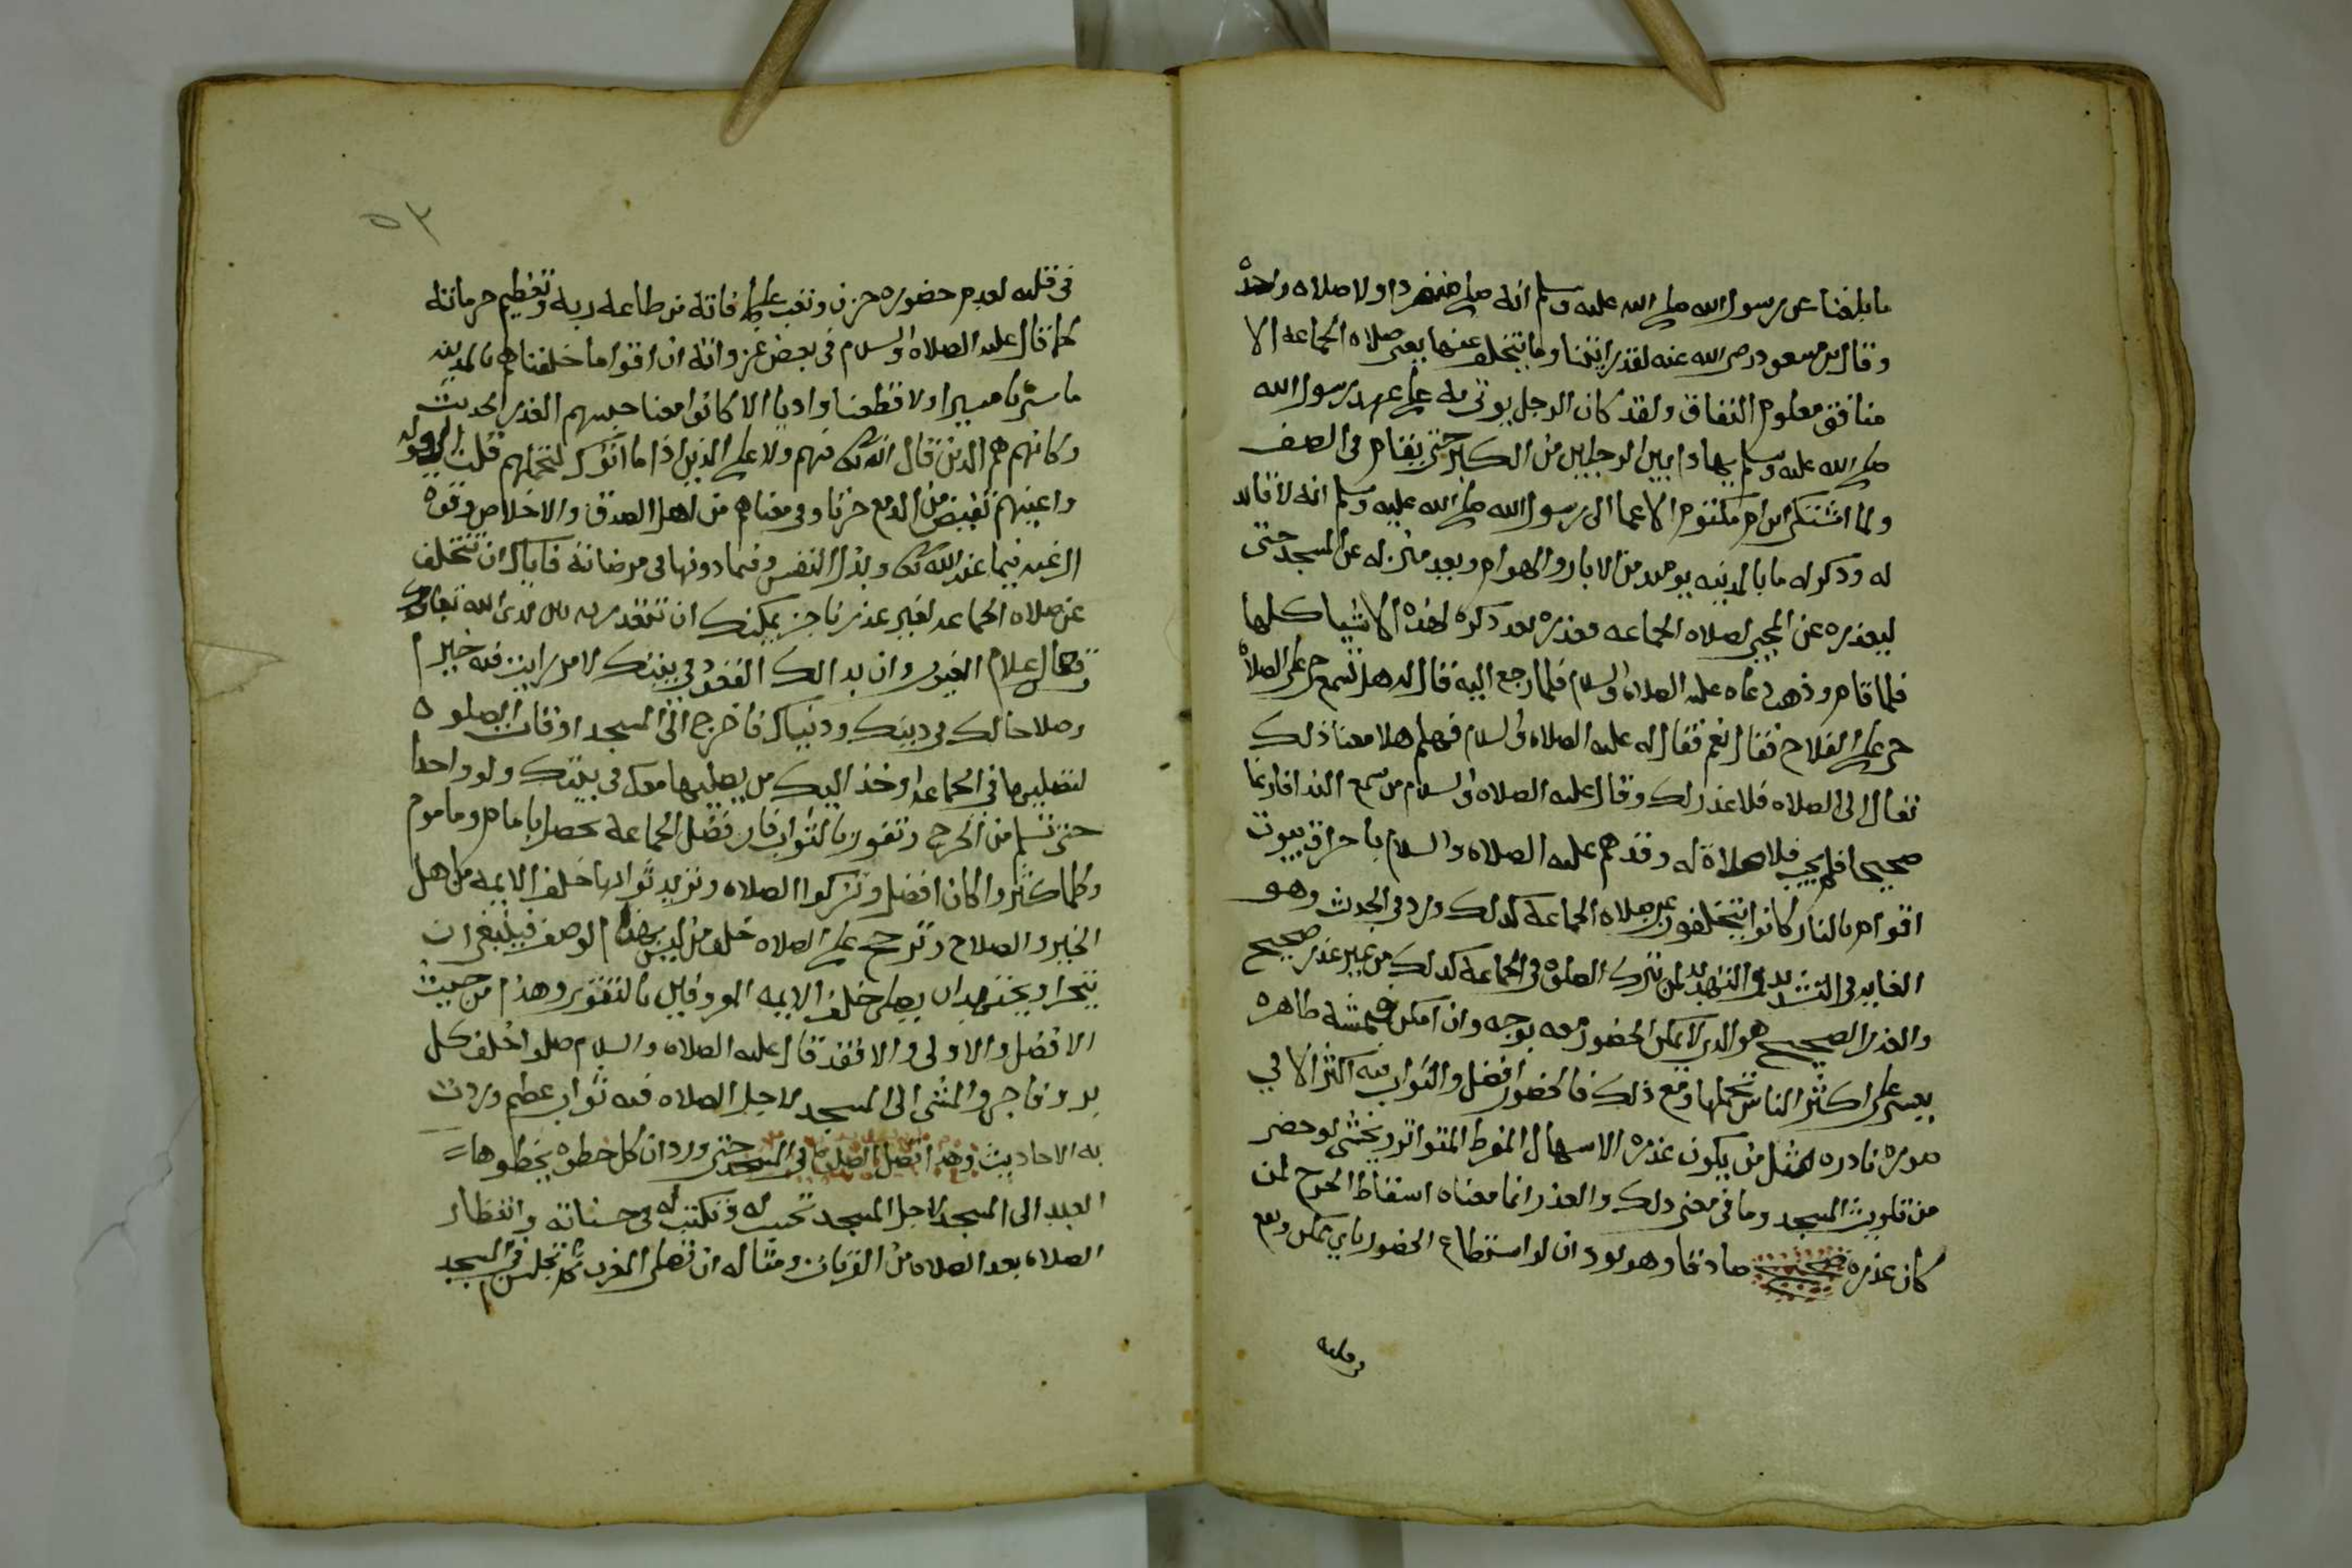 ما بلغنا عن رسول الله صلى الله عليه وسلم انه صلى منفردا ولا صلاه واحدة
وقال بن مسعود رضى الله عنه لقد رايتنا وما يتخلف عنها يعنى صلاه الجماعه الا
منافق معلوم النفاق ولقد كان الرجل يوتى به على عهد رسول الله
صلى الله عليه وسلم يهادا بين الرجلين من الكبر حتى يقام فى الصف
ولما اشتكى ابن ام مكتوم الاعما الى رسول الله صلى الله عليه وسلم انه لا قايد
له وذكر له ما بالمدينه يوميد من الابار والهوام وبعد منزله عن المسجد حتى
ليعذره عن المجى لصلاه الجماعه فعذره بعد ذكره لهذه الاشيا كلها
فلما قام وذهب دعاه عليه الصلاه والسلام فلما رجع اليه قال له هل تسمع حى على الصلاة
حى على الفلاح فقال نعم فقال له عليه الصلاه والسلام فهلم هلا معنا ذلك
تعال الى الصلاه فلا عذر لك وقال عليه الصلاه والسلام من سمع الندا فارغا
صحيحا فلم يجب فلا صلاة له وقد هم عليه الصلاه والسلام باحراق بيوت
اقوام بالنار كانوا يتخلفون عن صلاه الجماعة كذلك ورد فى الحديث وهو
الغايه فى التشديد والتهديد لمن ترك الصلوه فى الجماعة كذلك من غير عذر صحيح
والعذر الصحيح هو الذى لا يمكن الحضور معه بوجه وان امكن فبمشقة ظاهره
يعسر على اكثر الناس تحملها ومع ذلك فالحضور افضل والثواب فيه اكثر الا فى
صوره نادره مثل من يكون عذره الاسهال المفرط المتواتر ويخشى لو حضر
من تلويث المسجد وما فى معنى ذلك والعذر انما معناه اسقاط الحرج لمن
كان عذره صحيح صادقا وهو لو ود ان لو استطاع الحضور باى ممكن ويقع
فى قلبه
٥٣
فى قلبه لعدم حضوره حزن وتعب على ما فاته من طاعه ربه وتعظيم حرماته
كما قال عليه الصلاه والسلام فى بعض غزواته ان اقواما خلفناهم بالمدينه
ما سرنا مسيرا ولا قطعنا واديا الا كانوا معنا حبسهم العذر الحديث
وكانهم هم الذين قال الله فيهم ولا على الذين اذا ما اتوك لتحملهم قلت الى قوله
واعينهم تفيض من الدمع حزنا وفى معناهم من اهل الصدق والاخلاص وقوه
الرغبه فيما عند الله وبذل النفس فما دونها فى مرضاته فاياك ان تتخلف
عن صلاه الجماعه لغير عذر ناجز يمكنك ان تعتذر به بين يدى الله تعالى
علام الغيوب وان بدا لك القعود فى بيتك لامر رايت فيه خيرا
وصلاحا لك فى دينك ودنياك فاخرج الى المسجد اوقات الصلوه
لتصليها فى الجماعه او خذ اليك من يصليها معك فى بيتك ولو واحدا
حتى تسلم من الحرج وتفوز بالثواب فان فضل الجماعة يحصل بامام وماموم
وكلما كثروا كان افضل وتزكوا الصلاه ويزيد ثوابها خلف الايمه من اهل
الخير والصلاح وترجح على الصلاه خلف من ليس بهذا الوصف فينبغى ان
يتحرا ويجتهد ان يصلى خلف الايمه المعروفين بالتقوى وهذا من حيث
الافضل والاولى والا فقد قال عليه الصلاه والسلام صلوا خلف كل
بر وفاجر والمشى الى المسجد لاجل الصلاه فيه ثواب عظيم وردت
به الاحاديث وهذا افضل الصلاه فى المسجد حتى ورد ان كل خطوه يخطوها
العبد الى المسجد لاجل المسجد تحسب له وتكتب له فى حسناته وانتظار
الصلاه بعد الصلاه من القربات ومثاله ان تصلى المغرب ثم تجلس فى المسجد